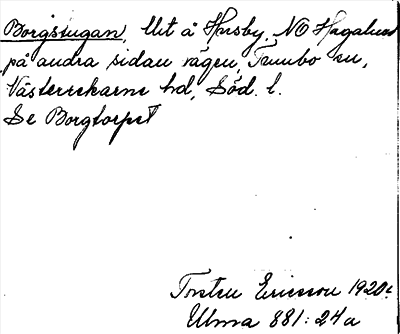 Borgstugan, lht å Husby, NO Hagalund
på andra sidan vägen, Tumbo sn,
Västerrekarne hd, Söd. l.
Se Borgtorpet
Torsten Ericsson 1920.
Ulma 881:24a